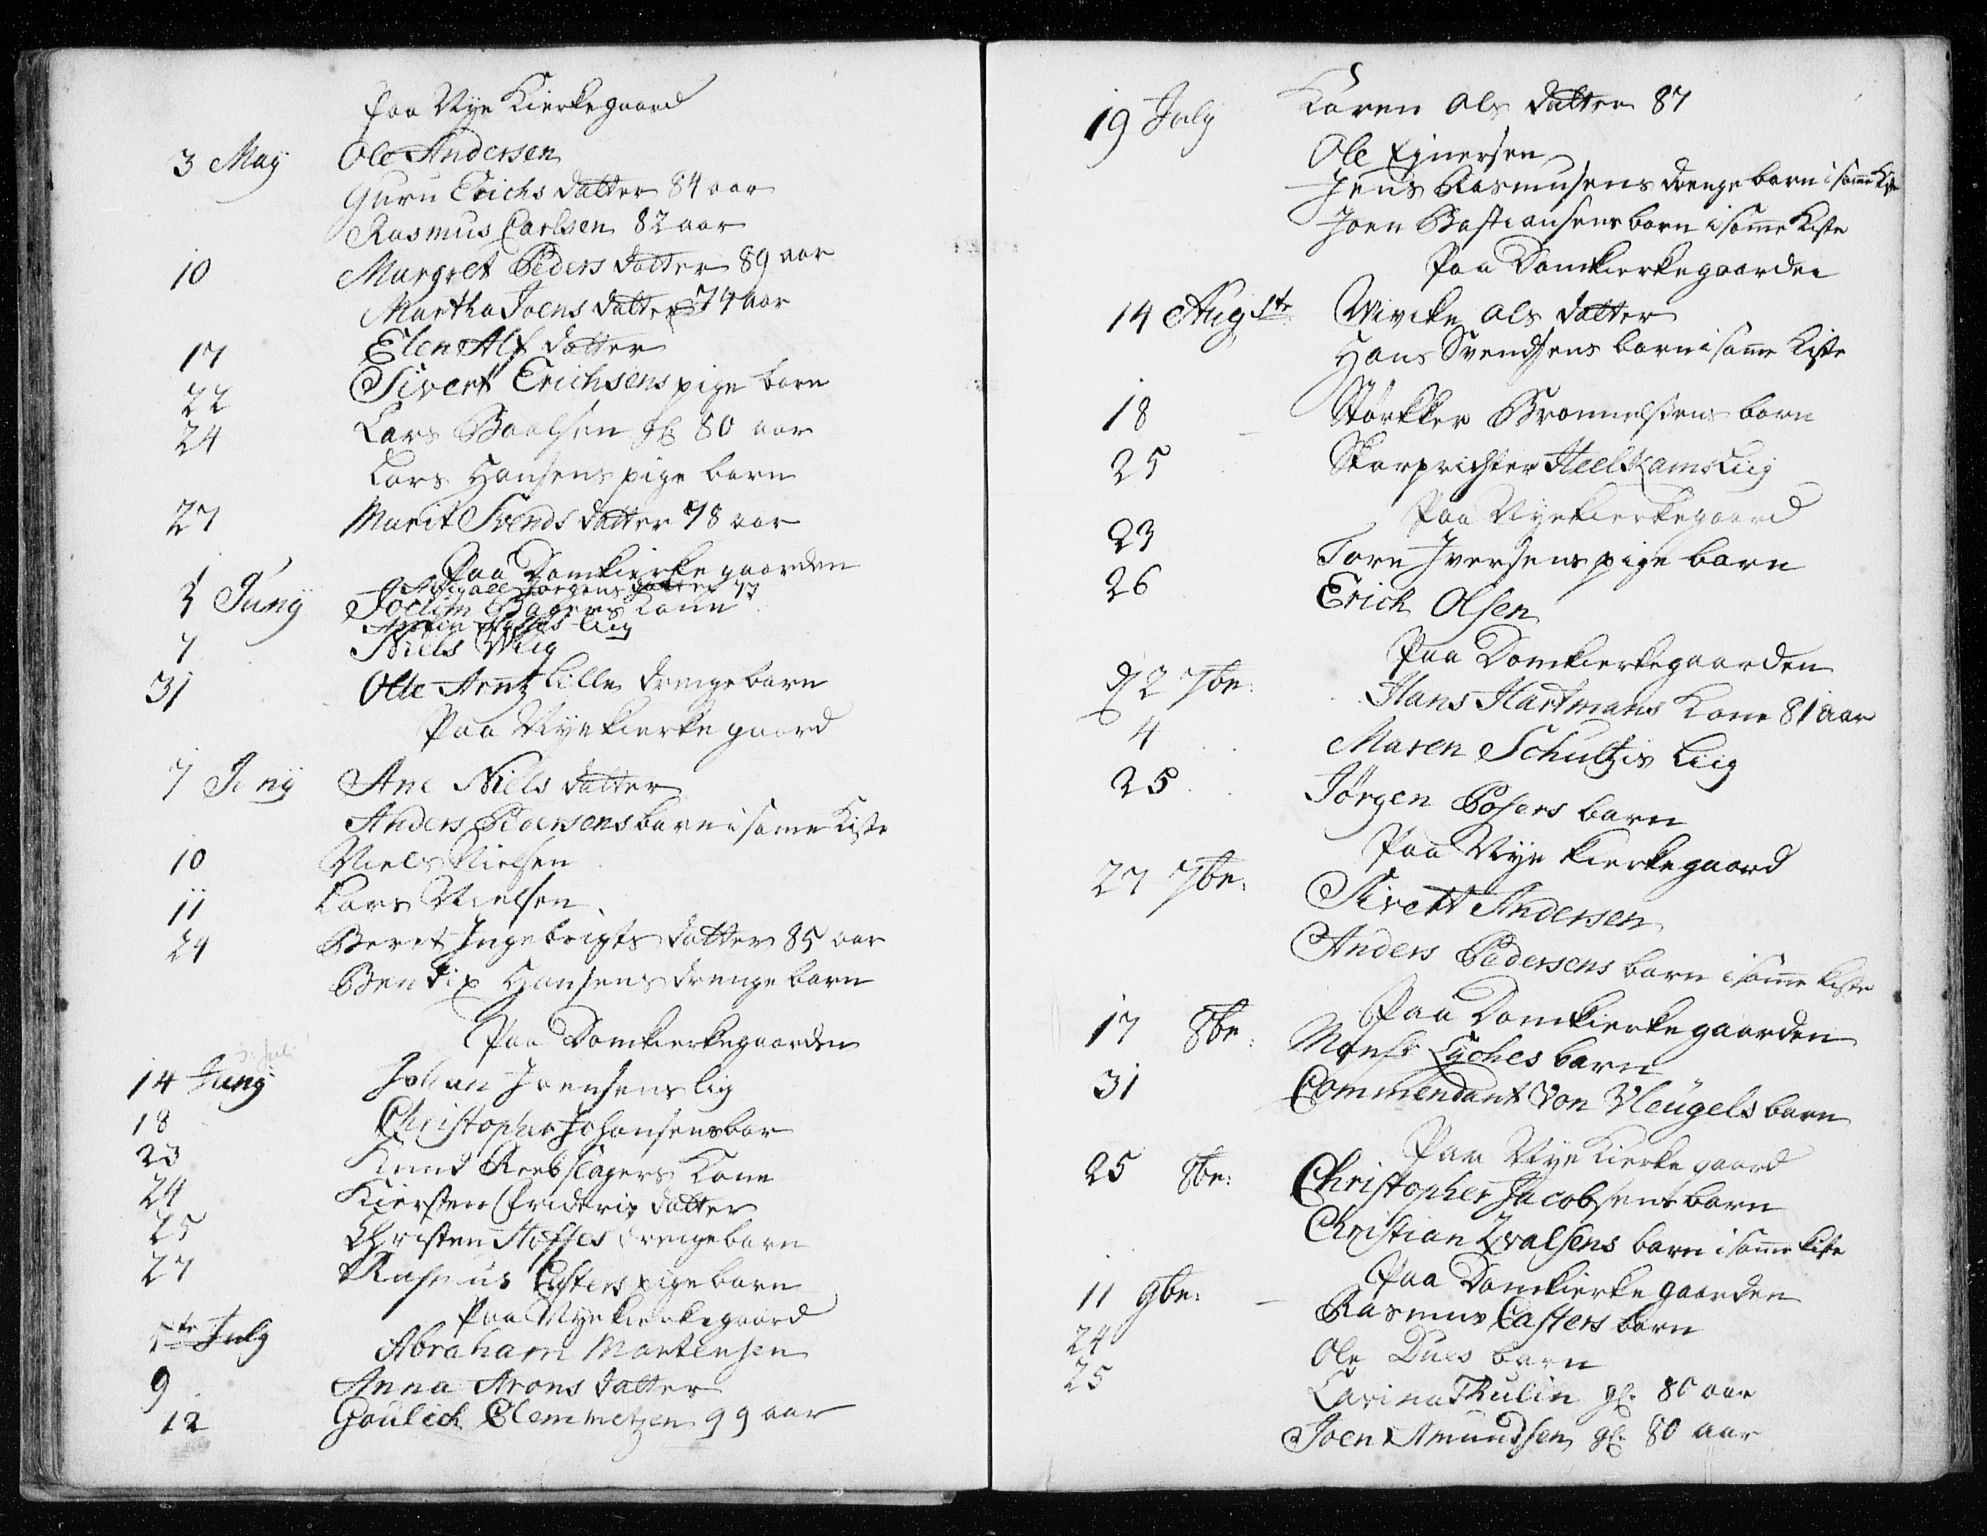 Paa Nye Kierkegaard
3 May Ole Andersen
Guru Erichs datter 84 aar
Rasmus Carlsen 82 aar
10 Margret Peders datter 89 aar
Martha Joens datter 74 aar
17 Elen Alf datter
22 Sivert Erichsens pige barn
24 Lars Baalsen gl 80 aar
Lars Hansens pige barn
27 Marit Svends datter 78 aar
Paa Domkierke gaarden
Jørgens datter 77
Juny Jochim Bagers Kone
liig
7 Niels Wiig
31 Olle Arntz lille drenge barn
Paa Nye kierke gaard
7 Juny Ane Niels datter
Anders Pedersens barn i same Kiste
10 Niels Nielsen
11 Lars Nielsen
24 Beret Ingebrigts datter 85 aar
Bendix Hansens drenge barn
Paa Domkierkegaarden
14 Juny Johan Joensens lig
18 Christopher Johansens bar
23 Knud Reebslagers Kone
24 Kiersten Friderix datter
25 Christen Hoffes drengebarn
27 Rasmus Casters pige barn
Paa Nye kierkegaard
1te July Abraham Martensen
9 Anna Arons datter
12 Goulich Clemmetzen 99 aar
19 July Karen Ols datter 87
Ole Ejnersen
Jens Rasmusens drenge barn i same Kiste
Joen Bastiansens barn i same Kiste
Paa Domkierkegaarden
14 Augste Wivike Ols datter
Hans Svendsens barn i same Kiste
18 Størkker Brommelstens barn
25 Skarprichter Heelskams Liig
Paa Nye kierkegaard
23 Tore Iversens pige barn
26 Erich Olsen
Paa Domkierkegaarden
2 7be: Hans Hartmans Kone 81 aar
4 Maren Schultzis Liig
25 Jørgen Posers barn
Paa Nye kierkegaard
27 7be: Sivert Andersen
Anders Pedersens barn i same kiste
Paa Domkierkegaarden
17 8be: Monsr Lyches barn
31 Commendant Von Vleugels barn
Paa Nye Kierke gaard
25 8be: Christopher Jacobsens barn
Christian Qvalsens barn i same kiste
Paa Domkierke gaarden
11 9be: Rasmus Casters barn
24 Ole Dues barn
25 Karina Thulin gl. 80 aar
Joen Amundsen gl. 80 aar